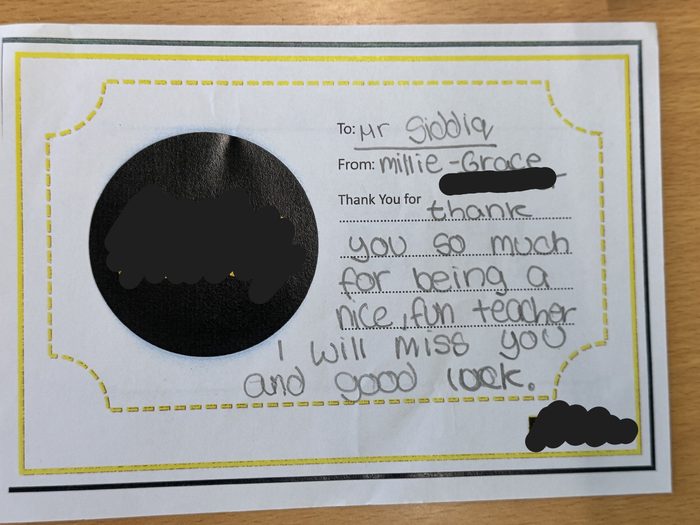 To: Mr Siddiq
From: millie-Grace
Thank You for thank
you so much
for being a
nice, fun teacher
I will miss you
and good look.